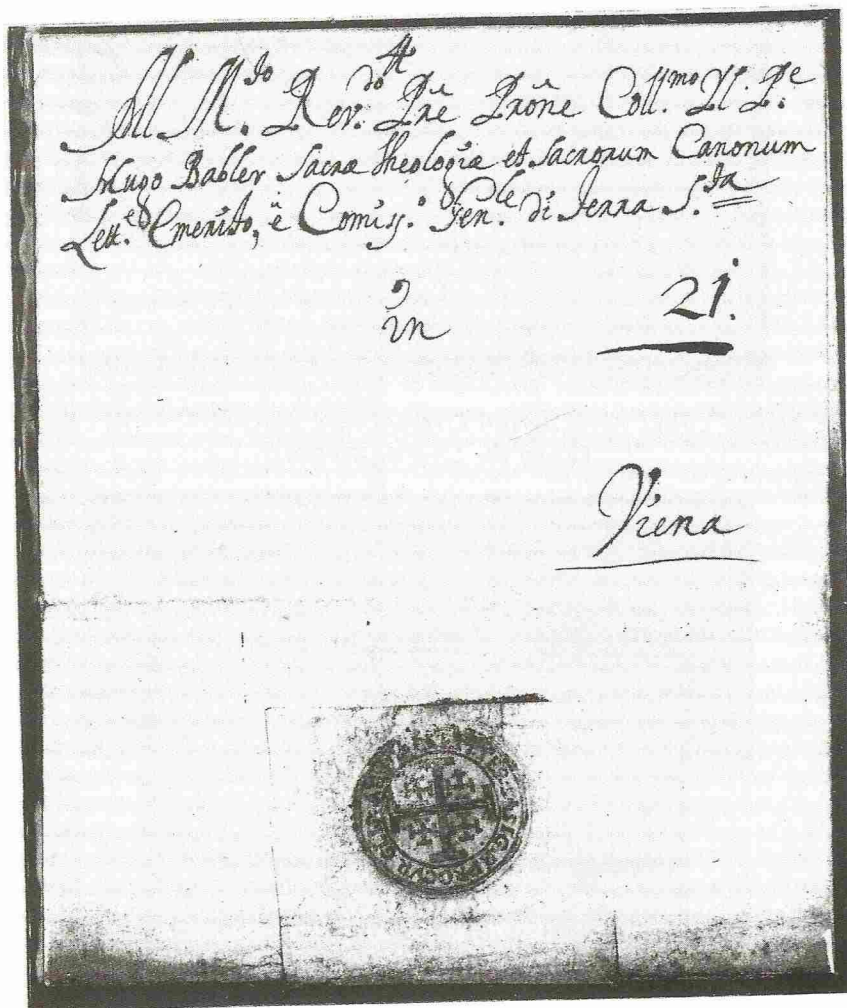 All M.do Rev.do Pre Prone Coll.mo Il P.e
Hugo Babler Sacræ Theologiæ et Sacrorum Canonum
Lett.e Emerito, ë Comiss.o Gen.le di Terra S.ta
in
21.
Viena